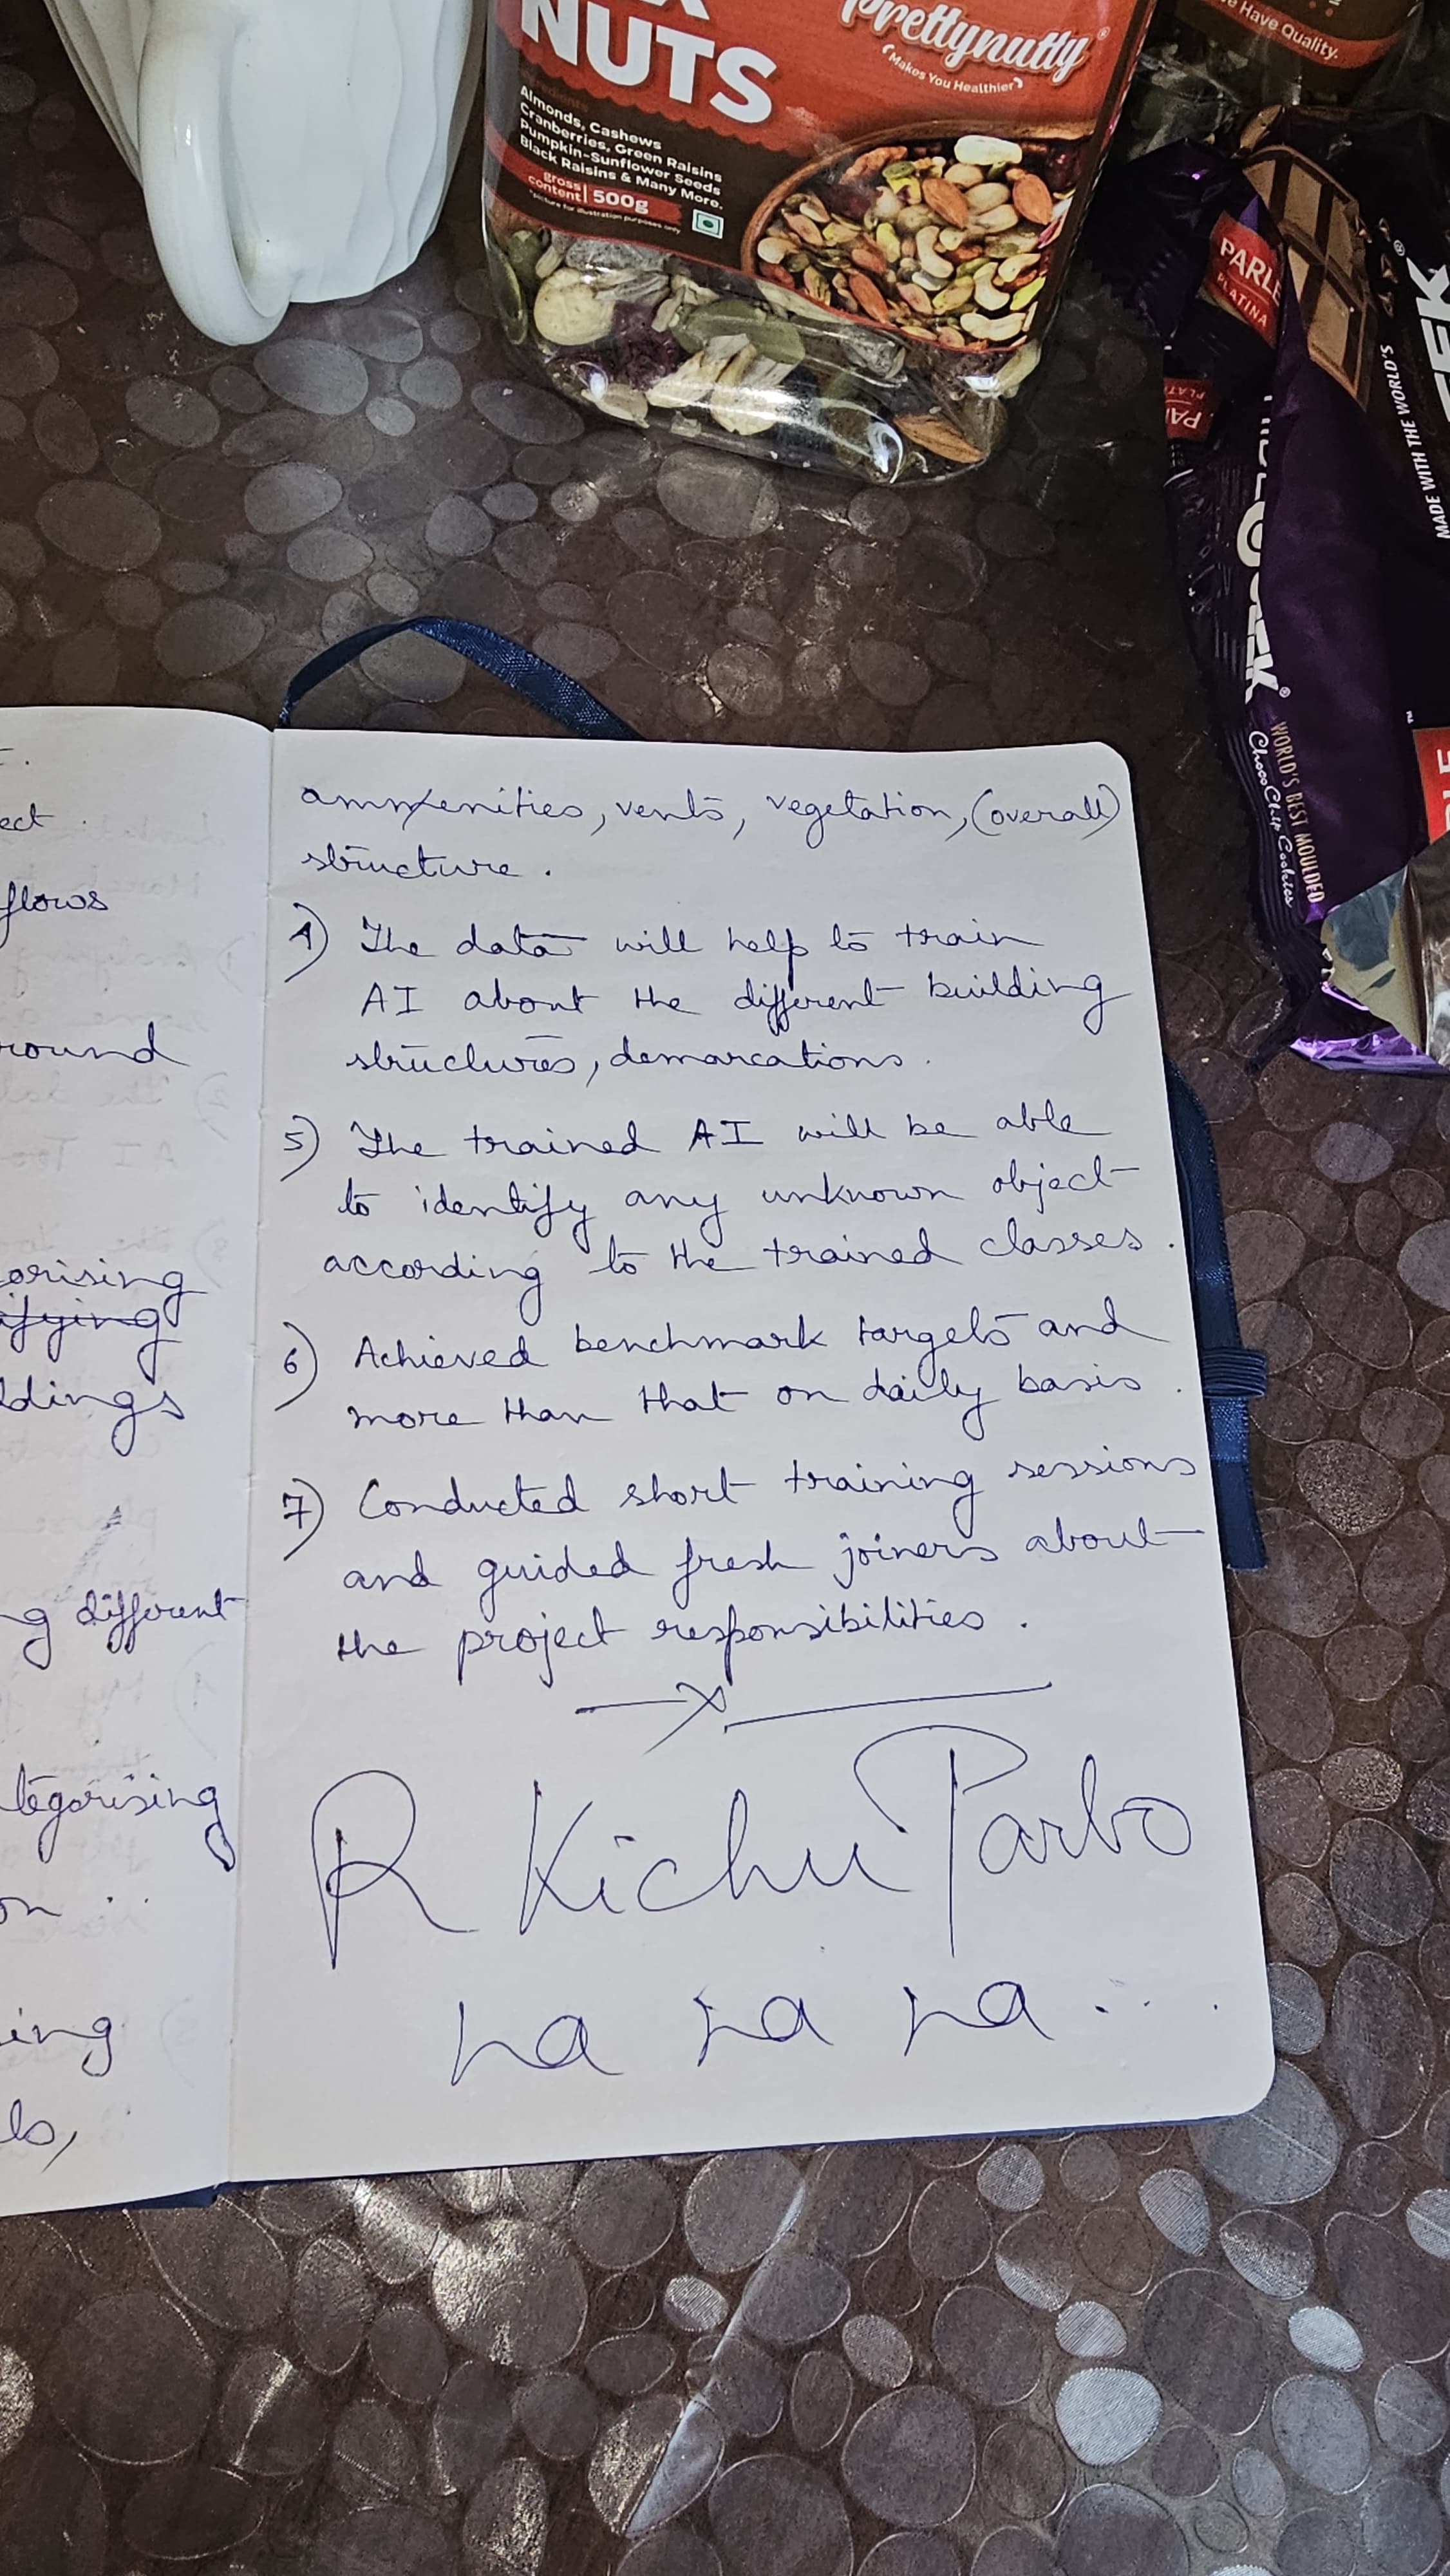 NUTS
Prettynutty®
Makes You Healthier
Almonds, Cashews
Cranberries, Green Raisins
Pumpkin-Sunflower Seeds
Black Raisins & Many More.
gross
content 500g
*picture for illustration purposes only
e Have Quality.
PARLE
PLATINA
MADE WITH THE WORLD'S
WORLD'S BEST MOULDED
Choco Chip Cookies
ect
flows
round
orising
ifying
ldings
ng different
tegorising
on ..
ing
ammenities, vents, vegetation, (overall)
structure.
4) The data will help to train
AI about the different building
structures, demarcations.
5) The trained AI will be able
to identify any unknown object
according to the trained classes.
6) Achieved benchmark targets and
more than that on daily basis.
7) Conducted short training sessions
and guided fresh joiners about
the project responsibilities.
R Kichu Parbo
na na na ....